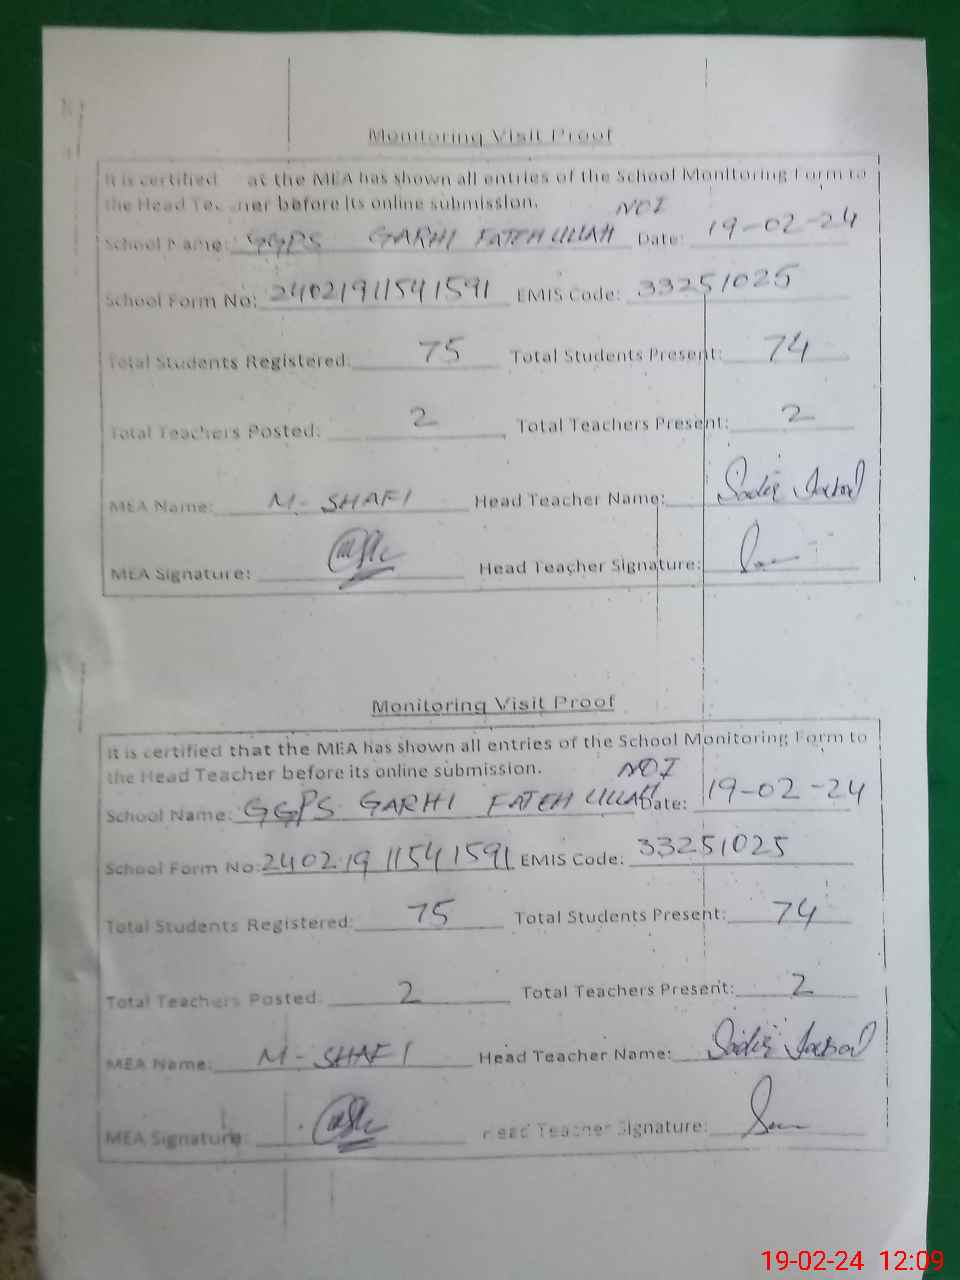 Monitoring Visit Proof
It is certified at the MEA has shown all entries of the School Monitoring Form to
the Head Teacher before its online submission.
School Name: GGPS GARHI FATEH ULLAH NO1 Date: 19-02-24
School Form No: 24021911541591 EMIS Code: 33251025
Total Students Registered: 75 Total Students Present: 74
Total Teachers Posted: 2 Total Teachers Present: 2
MEA Name: M-SHAFI Head Teacher Name:
MEA Signature: Head Teacher Signature:
Monitoring Visit Proof
It is certified that the MEA has shown all entries of the School Monitoring Form to
the Head Teacher before its online submission.
School Name: GGPS GARHI FATEH ULLAH NO1 Date: 19-02-24
School Form No: 24021911541591 EMIS Code: 33251025
Total Students Registered: 75 Total Students Present: 74
Total Teachers Posted: 2 Total Teachers Present: 2
MEA Name: M-SHAFI Head Teacher Name:
MEA Signature: Head Teacher Signature:
19-02-24 12:09